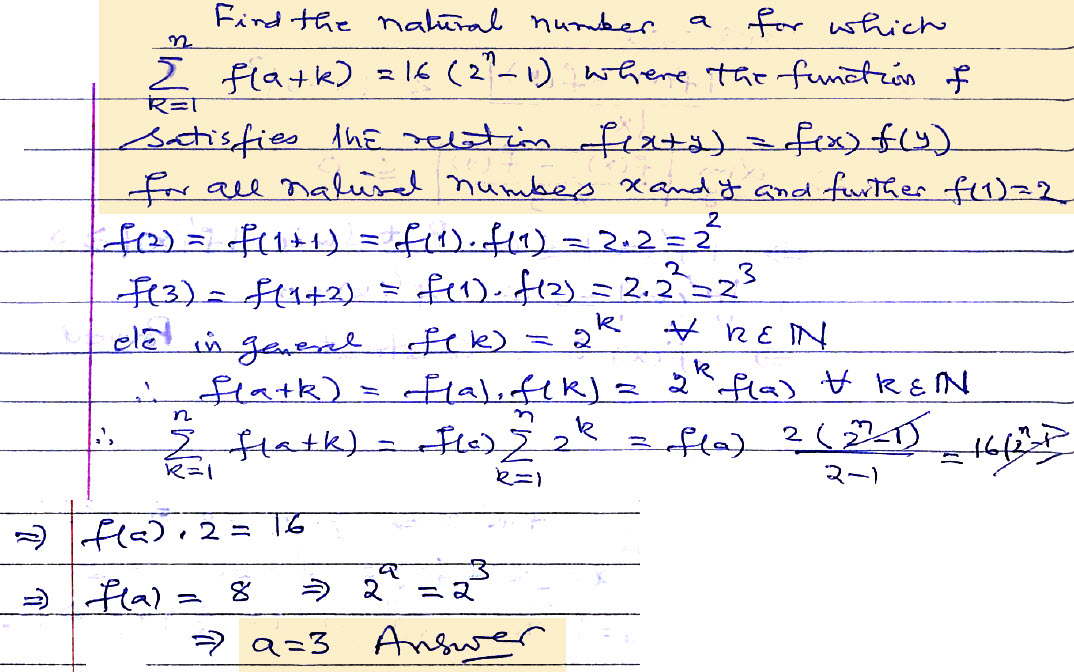 Find the natural number a for which
n∑k=1 f(a+k) = 16 (2ⁿ-1) where the function f
satisfies the relation f(x+y) = f(x) f(y)
for all natural numbers x and y and further f(1)=2
f(2) = f(1+1) = f(1).f(1) = 2.2 = 2²
f(3) = f(1+2) = f(1).f(2) = 2.2² = 2³
in general f(k) = 2ᵏ ∀ k ∈ ℕ
∴ f(a+k) = f(a).f(k) = 2ᵏ f(a) ∀ k ∈ ℕ
∴ n∑k=1 f(a+k) = f(a) n∑k=1 2ᵏ = f(a) 2(2ⁿ-1)/2-1 = 16(2ⁿ-1)
⇒ f(a).2 = 16
⇒ f(a) = 8 ⇒ 2ᵃ = 2³
⇒ a=3 Answer